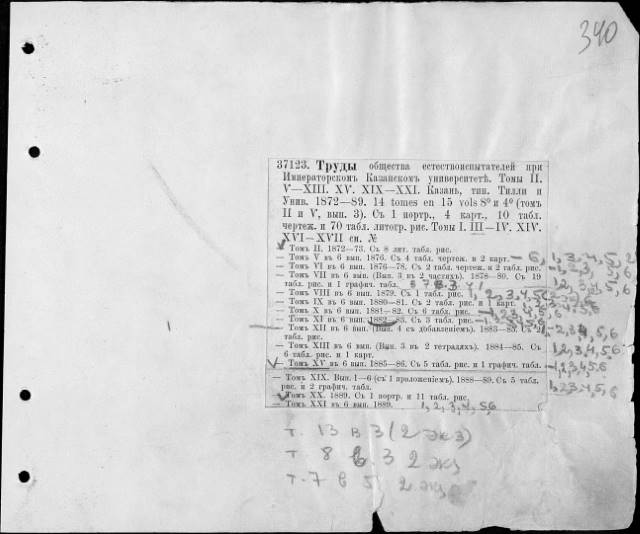 340
37123. Труды общества естествоиспытателей при
Императорскомъ Казанскомъ университетѣ. Томы II.
V—XIII. XV. XIX—XXI. Казань, тип. Тилли и
Унив. 1872—89. 14 tomes en 15 vols 8º и 4º (томъ
II и V, вып. 3). Съ 1 портр., 4 карт., 10 табл.
чертеж. и 70 табл. литогр. рис. Томы I. III—IV. XIV.
XVI—XVII см. №
— Томъ II. 1872—73. Съ 8 лит. табл. рис.
— Томъ V въ 6 вып. 1876. Съ 4 табл. чертеж. и 2 карт.
— Томъ VI въ 6 вып. 1876—78. Съ 2 табл. чертеж. и 2 табл. рис.
— Томъ VII въ 6 вып. (Вып. 3 въ 2 частяхъ). 1878—80. Съ 19
табл. рис. и 1 графич. табл.
— Томъ VIII въ 6 вып. 1879. Съ 1 табл. рис. 1, 2, 3, 4, 5, 6
— Томъ IX въ 6 вып. 1880—81. Съ 2 табл. рис. и 1 карт.
— Томъ X въ 6 вып. 1881—82. Съ 6 табл. рис.
— Томъ XI въ 6 вып. 1882—83. Съ 3 табл. рис.
— Томъ XII въ 6 вып. (Вып. 4 съ добавленіемъ). 1883—85.
табл. рис.
— Томъ XIII въ 6 вып. (Вып. 3 въ 2 тетрадяхъ). 1884—85. Съ
6 табл. рис. и 1 карт. 1, 2, 3, 4, 5, 6
— Томъ XV въ 6 вып. 1885—86. Съ 5 табл. рис. и 1 графич. табл. 1, 2, 3, 4, 5, 6
— Томъ XIX. Вып. 1—6 (съ 1 приложеніемъ). 1888—89. Съ 5 табл.
рис. и 2 графич. табл. 1, 2, 3, 4, 5, 6
— Томъ XX. 1889. Съ 1 портр. и 11 табл. рис.
— Томъ XXI въ 6 вып. 1889. 1, 2, 3, 4, 5, 6
т. 13 в 3 (2 экз)
т. 8 в 3 2 экз
т. 7 в 5 2 экз